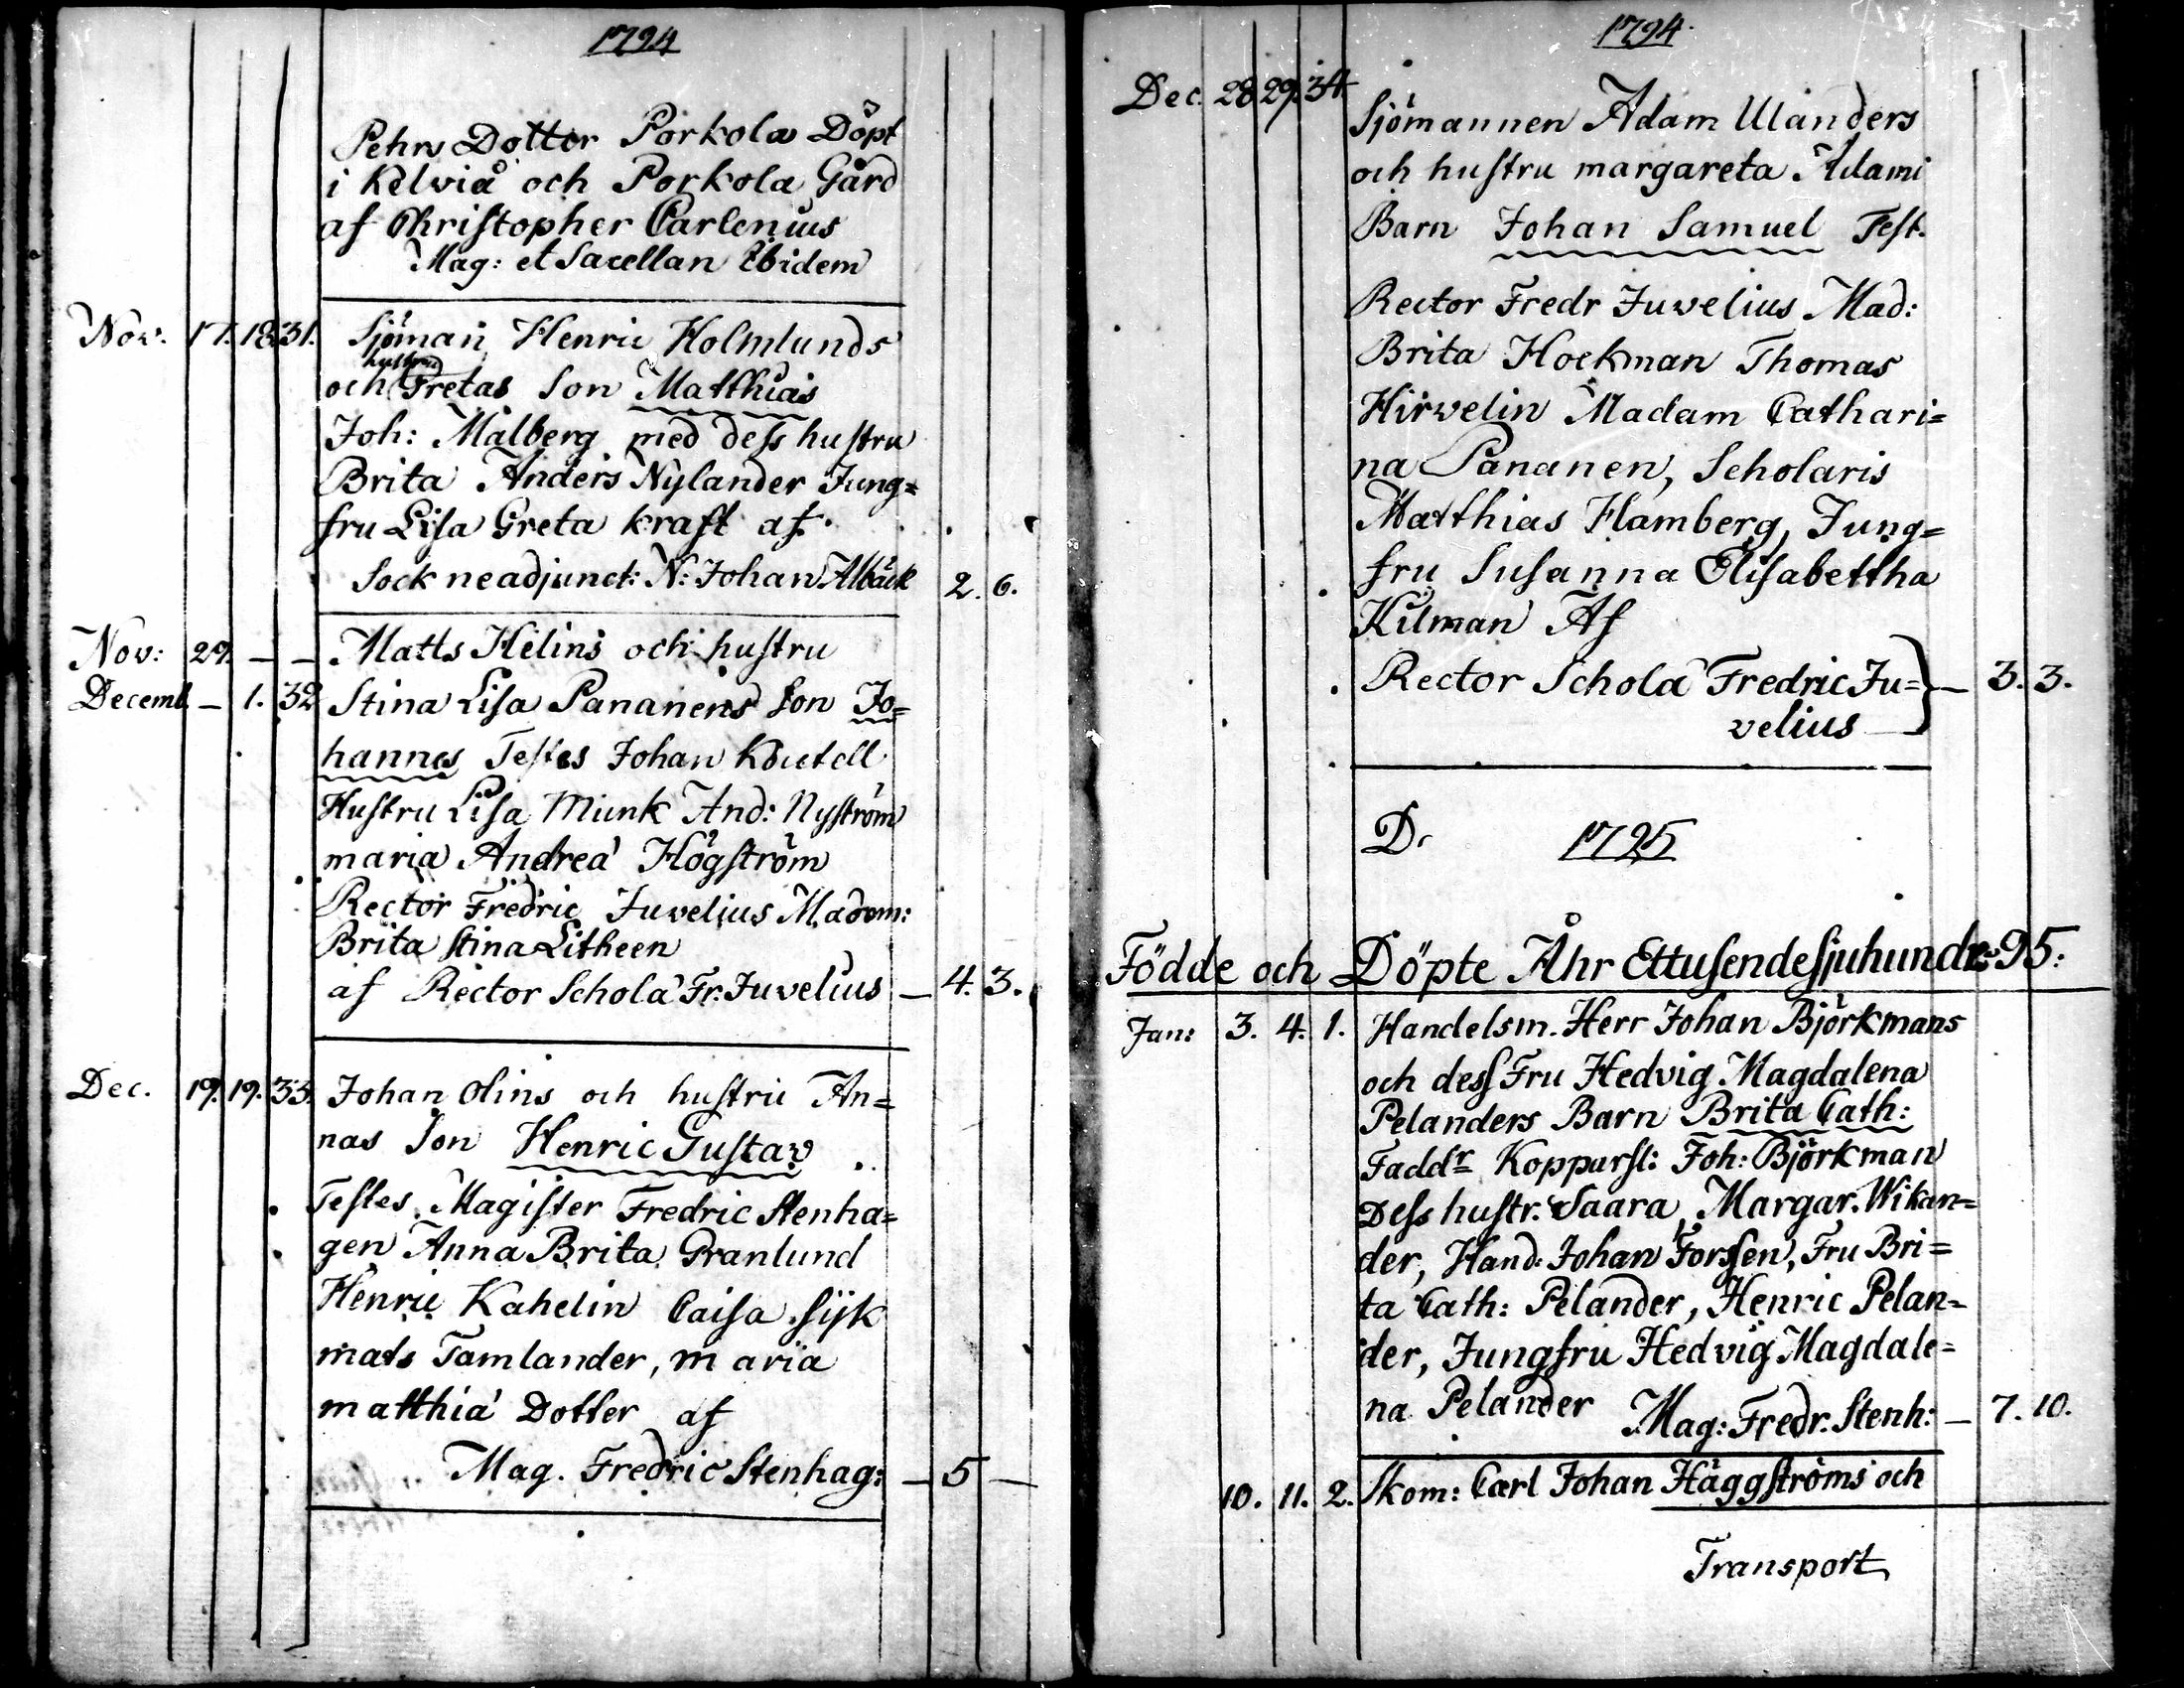 1794
Pehrs Dotter Porkola Döpt
i Kelviå och Porkola Gård
af Christopher Carlenius
Mag: et Sacellan Ebidem
Nov. 17. 18. 31. Sjöman Henric Holmlunds
hustru
och Gretas Son Matthias
Joh: Malberg med dess hustru
Brita Anders Nylander Jung=
fru Lisa Greta kraft af
Sockneadjunct: N: Johan Alback 2. 6.
Nov: 29. — — Matts Helins och hustru
Decemb. — 1. 32 Stina Lisa Pananens Son Jo=
hannes Testes Johan
Hustru Lisa Munk And: Nyström
maria Andreä Högström
Rector Fredric Juvelius Madem:
Brita Stina Litheen
af Rector Schola Fr. Juvelius — 4. 3.
Dec. 19. 19. 33. Johan Olins och hustru An=
nas Son Henric Gustav
Testes Magister Fredric Stenha=
gen Anna Brita Granlund
Henric Kahelin Caisa Sijk
mats Tamlander, maria
matthiä Dotter af
Mag. Fredric Stenhag: — 5 —
1794.
Dec. 28 29. 34 Sjömannen Adam Ulanders
och hustru margareta Adami
Barn Johan Samuel Test.
Rector Fredr Juvelius Mad:
Brita Hockman Thomas
Hirvelin Madam Cathari=
na Pananen, Scholaris
Matthias Flamberg, Jung=
fru Susanna Elisabettha
Kilman Af
Rector Schola Fredric Ju= } — 3. 3.
velius
D. 1795
Födde och Döpte Åhr Ettusendesjuhundr: 95:
Jan: 3. 4. 1. Handelsm. Herr Johan Björkmans
och dess Fru Hedvig Magdalena
Pelanders Barn Brita Cath:
Faddr Kopparsl: Joh: Björkman
Dess hustr. Saara Margar. Wikan=
der, Hand: Johan Forssen, Fru Bri=
ta Cath: Pelander, Henric Pelan=
der, Jungfru Hedvig Magdale=
na Pelander Mag: Fredr. Stenh: — 7. 10.
10. 11. 2. Skom: Carl Johan Häggströms och
Transport